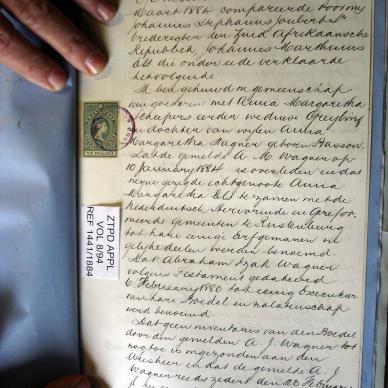 Maart 1884 compareerde voor my
Johannes Stephanus Joubert Sr
Vrederegter den Zuid Afrikaansche
Republiek Johannes Marthinus
Els die onder eede verklaarde
hetvolgende
Ik ben gehuwd in gemeenschap
van goederen met Anna Margaretha
Scheepers eerder weduwe Greyling
en dochter van wylen Anna
Margaretha Wagner geboren Basson.
Dat de gemelde A. M. Wagner op
10 January 1884 is overleden en dat
myne gezegde echtgenoote Anna
Margaretha Els te zamen met de
Nederduitsch Hervormde en Gerefor-
meerde gemeente te Rustenburg
tot hare eenige Erfgenamen
gelykedeelen werden benoemd
Dat Abraham Izak Wagner
volgens Testament gedateerd
6 February 1880 tot eenig Executeur
van hare Boedel en nalatenschap
werd benoemd
Dat geen inventaris van den Boedel
door den gemelden A. J. Wagner tot
nog toe is ingezonden aan den
Weesheer en dat de gemelde A. J.
Wagner reeds zedert den 28 February
ZTPD APPL
VOL 8/94
REF 1441/1884